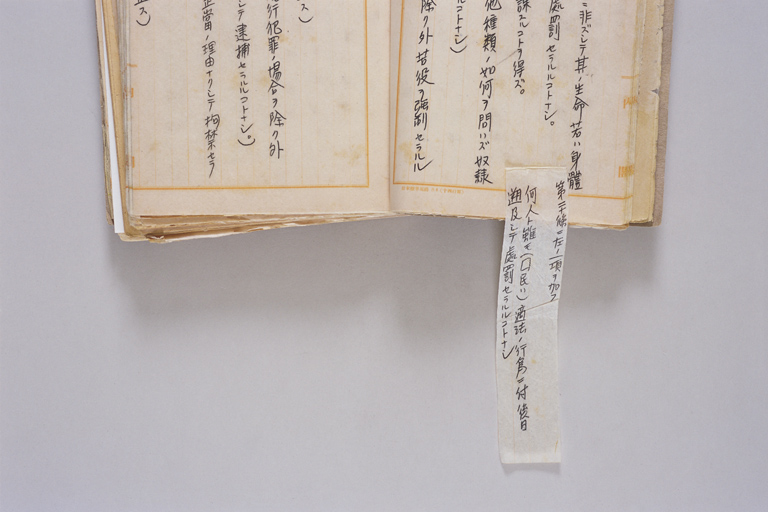 ニ非ズシテ其ノ生命若ハ身體
處罰セラルルコトナシ。
課スルコトヲ得ズ。
他種類ノ如何ヲ問ハズ奴隷
ルコトナシ)
除ク外苦役ヲ強制セラル
第二十條ニ左ノ一項ヲ加フ
何人ト雖モ(国民ハ)適法ノ行爲ニ付後日
遡及シテ處罰セラルルコトナシ
ス)
行犯罪ノ場合ヲ除ク外
シテ逮捕セラルルコトナシ。)
正當ノ理由ナクシテ拘禁セラ
ス)